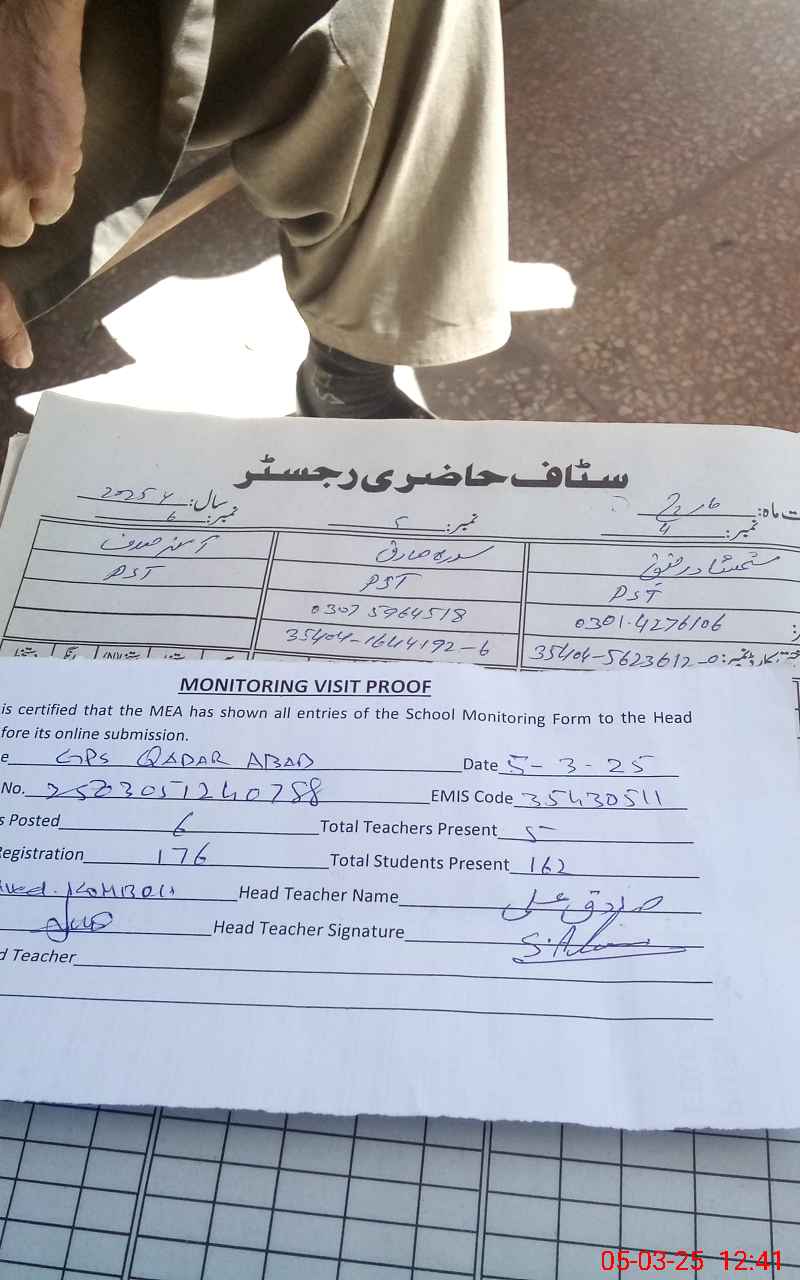 سٹاف حاضری رجسٹر
ت ماہ: مارچ سال: 2025ء
نمبر: 4 نمبر: 5 نمبر: 6
شمشاد رفیق سدرہ صادق
PST PST PST
0301-4276106 0307 5964518
35404-5623612-0 35404-1644192-6
MONITORING VISIT PROOF
is certified that the MEA has shown all entries of the School Monitoring Form to the Head
fore its online submission.
e GPS QADAR ABAD Date 5-3-25
No. 2503051240788 EMIS Code 35430511
s Posted 6 Total Teachers Present 5
Registration 176 Total Students Present 162
KOMBOH Head Teacher Name صادق علی
Head Teacher Signature S.Ali
d Teacher
05-03-25 12:41